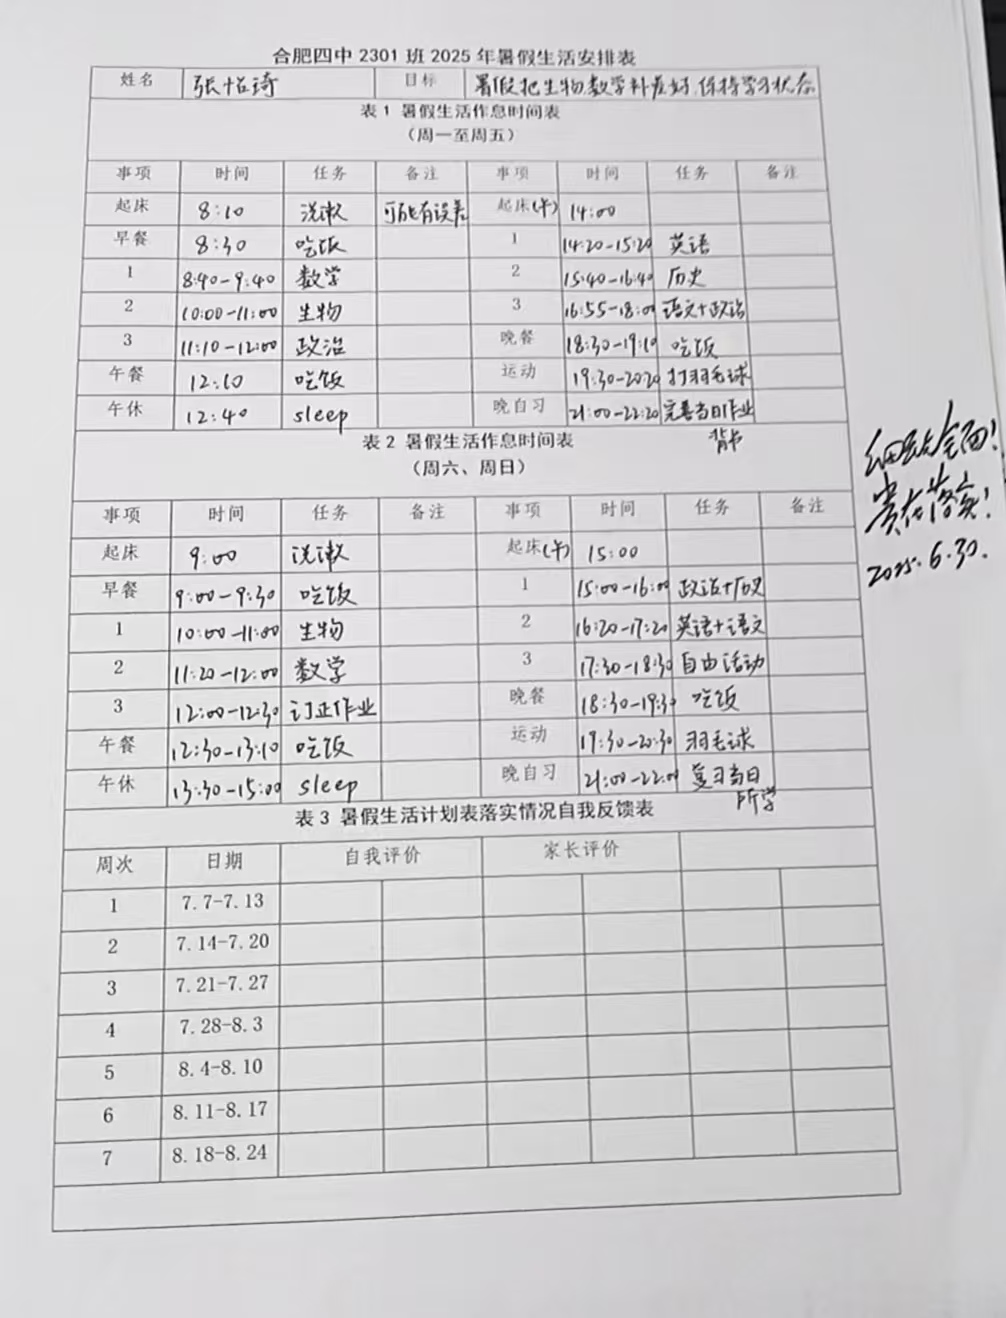 合肥四中2301班2025年暑假生活安排表
姓名 张怡琦 目标 暑假把生物、数学补差好,保持学习状态
表1 暑假生活作息时间表
(周一至周五)
事项 时间 任务 备注 事项 时间 任务 备注
起床 8:10 洗漱 可能有误差 起床(午) 14:00
早餐 8:30 吃饭 1 14:20-15:20 英语
1 8:40-9:40 数学 2 15:40-16:40 历史
2 10:00-11:00 生物 3 16:55-18:00 语文+政治
3 11:10-12:00 政治 晚餐 18:30-19:10 吃饭
午餐 12:10 吃饭 运动 19:30-20:20 打羽毛球
午休 12:40 sleep 晚自习 21:00-22:20 完善当日作业
背书
表2 暑假生活作息时间表
(周六、周日)
事项 时间 任务 备注 事项 时间 任务 备注
起床 9:00 洗漱 起床(午) 15:00
早餐 9:00-9:30 吃饭 1 15:00-16:00 政治+历史
1 10:00-11:00 生物 2 16:20-17:20 英语+语文
2 11:20-12:00 数学 3 17:30-18:30 自由活动
3 12:00-12:30 订正作业 晚餐 18:30-19:30 吃饭
午餐 12:30-13:10 吃饭 运动 19:30-20:30 羽毛球
午休 13:30-15:00 sleep 晚自习 21:00-22:00 复习当日
所学
表3 暑假生活计划表落实情况自我反馈表
周次 日期 自我评价 家长评价
1 7.7-7.13
2 7.14-7.20
3 7.21-7.27
4 7.28-8.3
5 8.4-8.10
6 8.11-8.17
7 8.18-8.24
全面!
贵在落实!
2025.6.30.